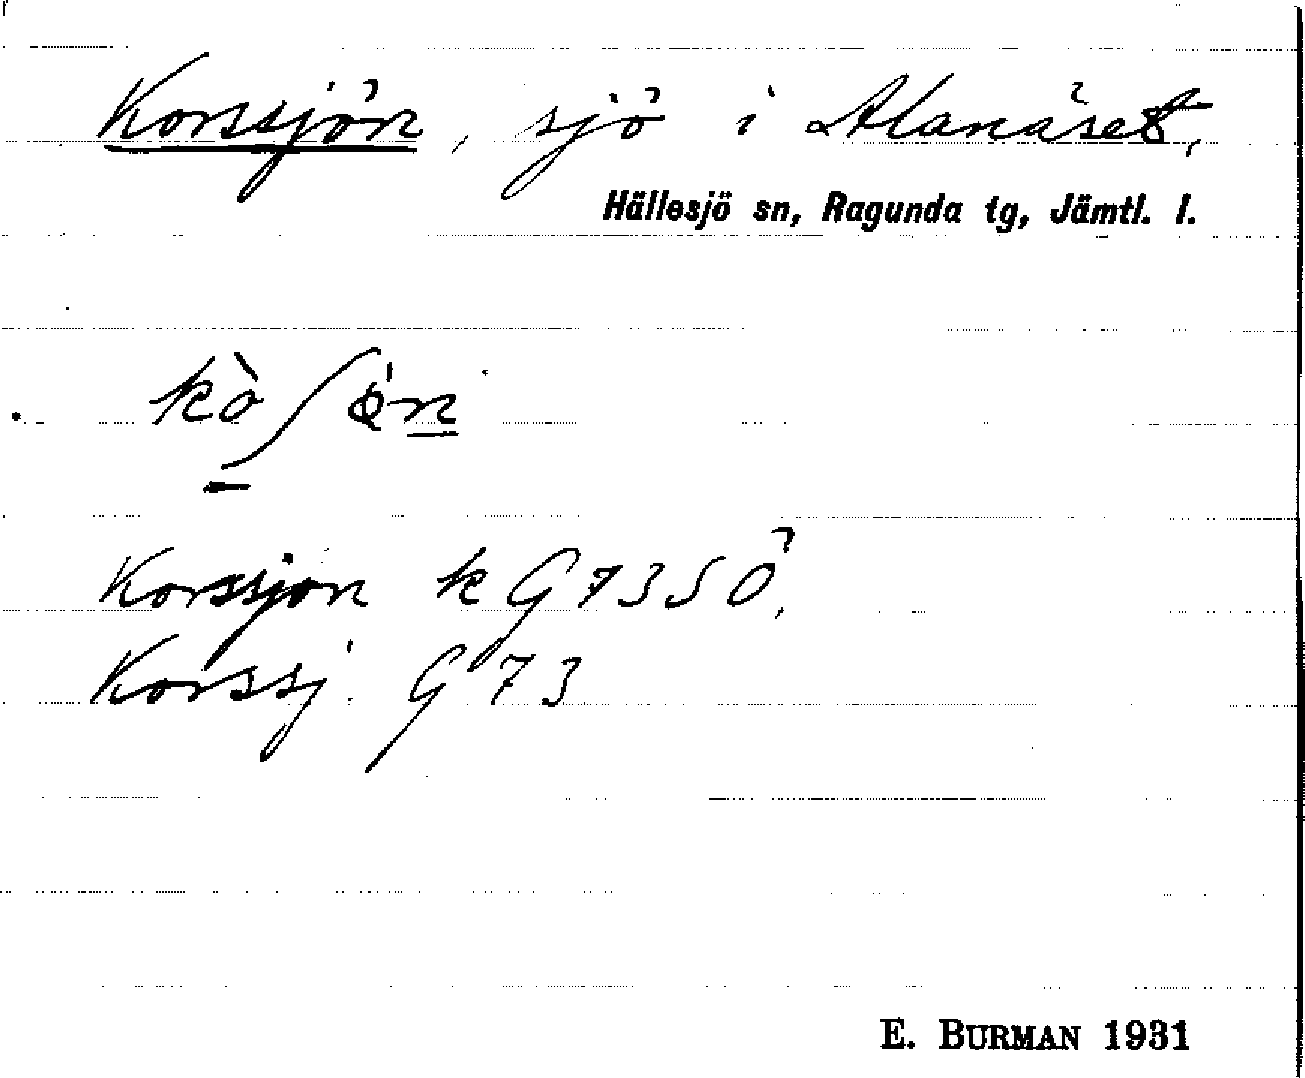 Korssjön, sjö i Alanäset,
Hällesjö sn, Ragunda tg, Jämtl. l.
kòʃǿn
Korssjön k G 73 SÖ,
Korssj. G 73
E. BURMAN 1931